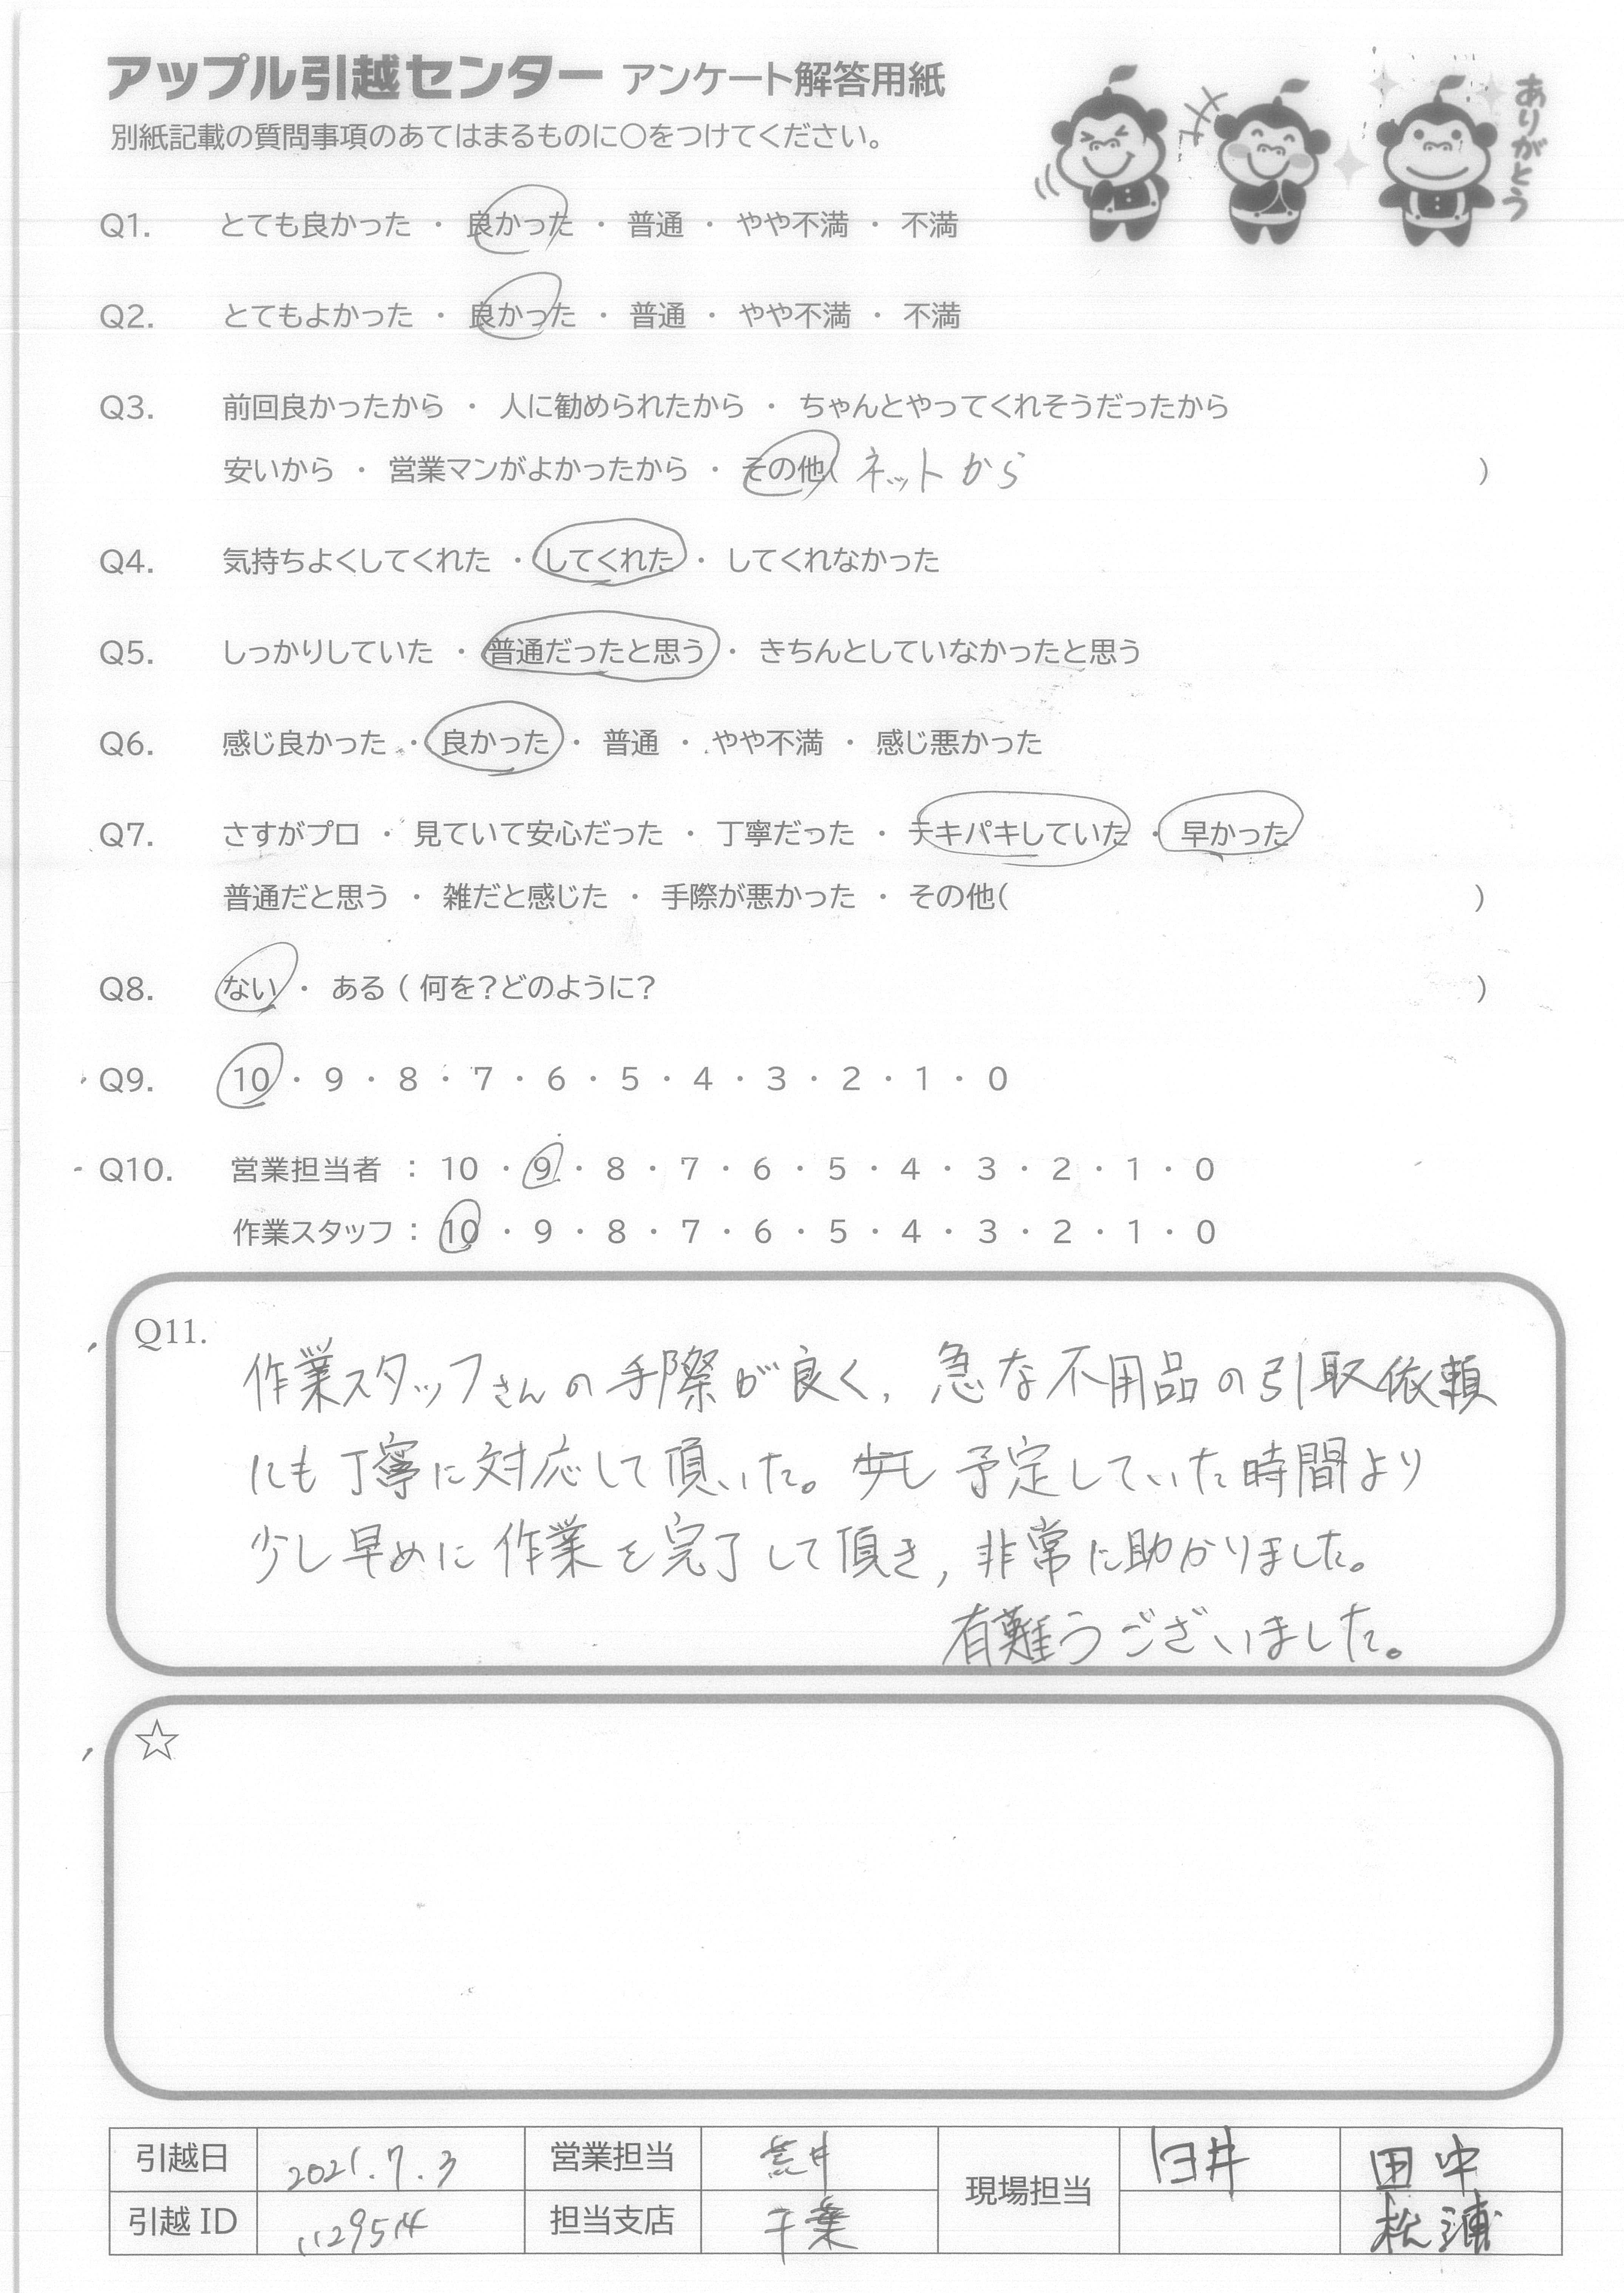 アップル引越センター アンケート解答用紙
別紙記載の質問事項のあてはまるものに○をつけてください。
ありがとう
Q1. とても良かった ・ 良かった ・ 普通 ・ やや不満 ・ 不満
Q2. とてもよかった ・ 良かった ・ 普通 ・ やや不満 ・ 不満
Q3. 前回良かったから ・ 人に勧められたから ・ ちゃんとやってくれそうだったから
安いから ・ 営業マンがよかったから ・ その他( ネットから )
Q4. 気持ちよくしてくれた ・ してくれた ・ してくれなかった
Q5. しっかりしていた ・ 普通だったと思う ・ きちんとしていなかったと思う
Q6. 感じ良かった ・ 良かった ・ 普通 ・ やや不満 ・ 感じ悪かった
Q7. さすがプロ ・ 見ていて安心だった ・ 丁寧だった ・ テキパキしていた ・ 早かった
普通だと思う ・ 雑だと感じた ・ 手際が悪かった ・ その他( )
Q8. ない ・ ある ( 何を?どのように? )
Q9. 10 ・ 9 ・ 8 ・ 7 ・ 6 ・ 5 ・ 4 ・ 3 ・ 2 ・ 1 ・ 0
Q10. 営業担当者 : 10 ・ 9 ・ 8 ・ 7 ・ 6 ・ 5 ・ 4 ・ 3 ・ 2 ・ 1 ・ 0
作業スタッフ : 10 ・ 9 ・ 8 ・ 7 ・ 6 ・ 5 ・ 4 ・ 3 ・ 2 ・ 1 ・ 0
Q11.
作業スタッフさんの手際が良く、急な不用品の引取依頼
にも丁寧に対応して頂いた。予定していた時間より
少し早めに作業を完了して頂き、非常に助かりました。
有難うございました。
☆
引越日 2021.7.3 営業担当 荒井 現場担当 臼井 田中
引越ID 1129514 担当支店 千葉 松浦